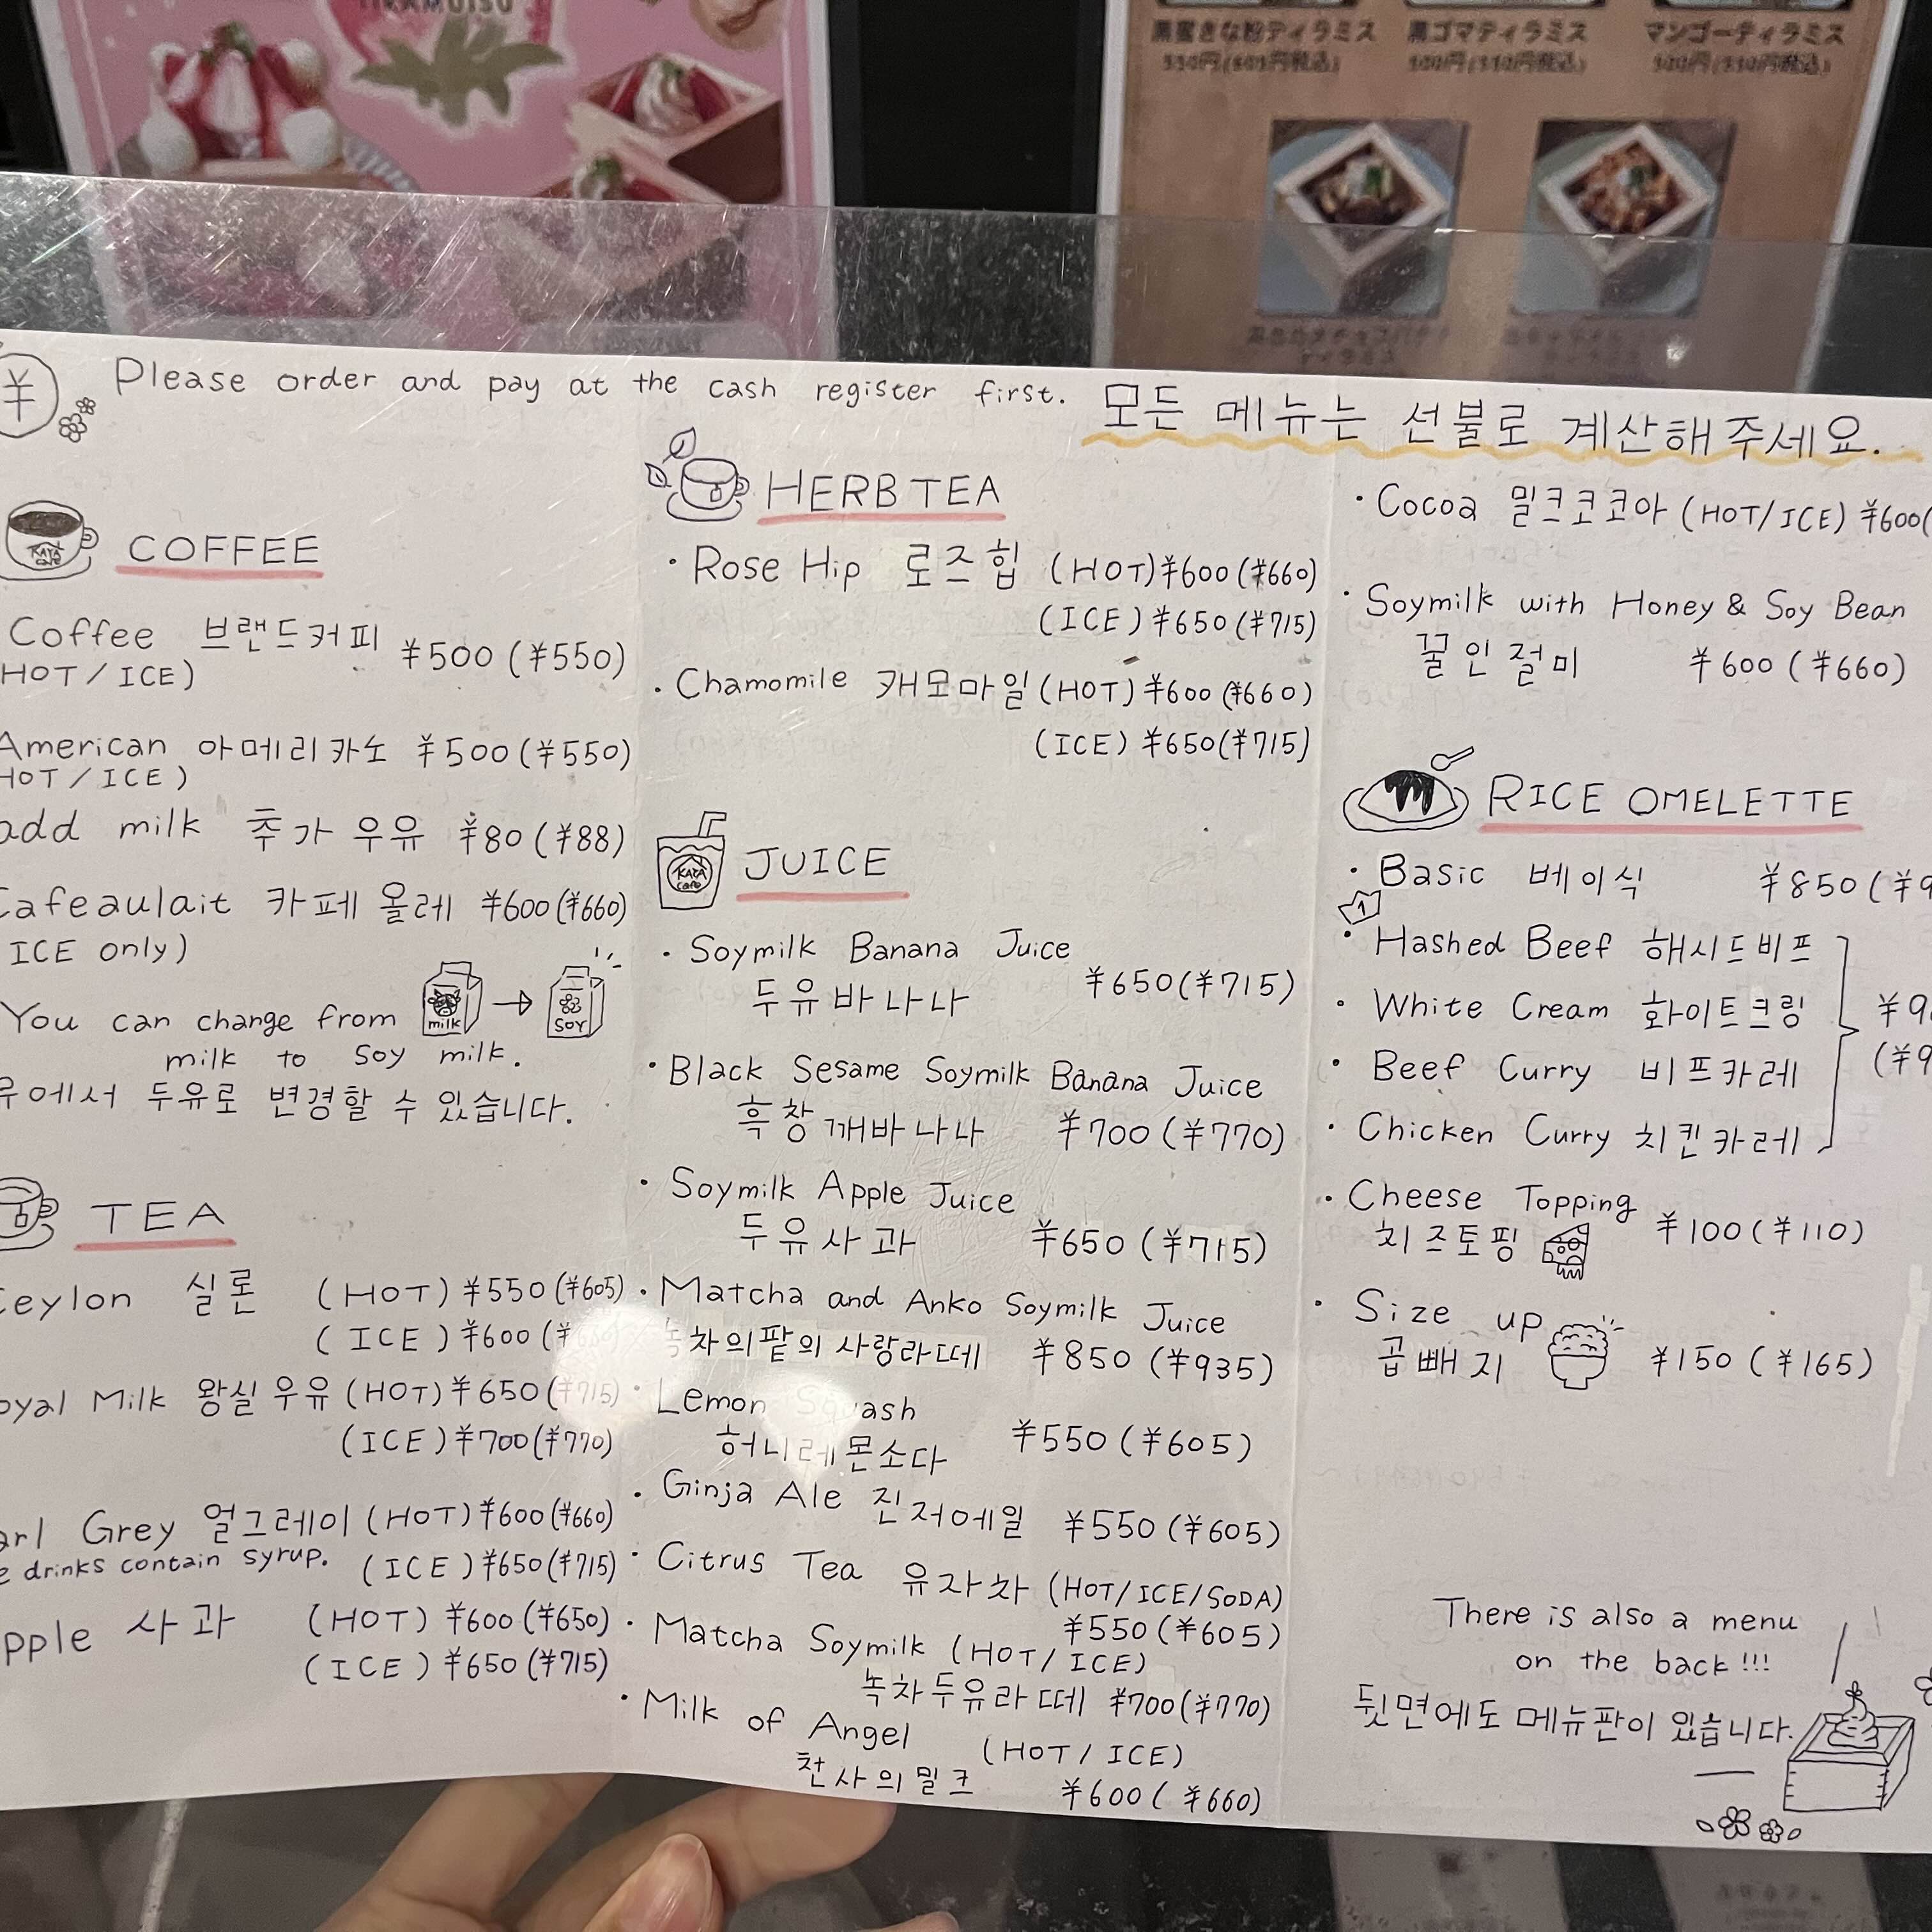 黒蜜きな粉ティラミス
黒ゴマティラミス
マンゴーティラミス
ティラミス
¥
Please order and pay at the cash register first.
모든 메뉴는 선불로 계산해주세요.
KAYA
cafe
COFFEE
Coffee 브랜드커피 ¥500 (¥550)
HOT / ICE)
American 아메리카노 ¥500 (¥550)
HOT / ICE)
add milk 추가 우유 ¥80 (¥88)
Cafeaulait 카페 올레 ¥600 (¥660)
ICE only)
You can change from milk → SOY
milk to soy milk.
유에서 두유로 변경할 수 있습니다.
TEA
Ceylon 실론 (HOT) ¥550 (¥605)
(ICE) ¥600
oyal Milk 왕실우유 (HOT) ¥650 (¥715)
(ICE) ¥700 (¥770)
arl Grey 얼그레이 (HOT) ¥600 (¥660)
e drinks contain syrup. (ICE) ¥650 (¥715)
pple 사과 (HOT) ¥600 (¥650)
(ICE) ¥650 (¥715)
HERB TEA
・Rose Hip 로즈힙 (HOT) ¥600 (¥660)
(ICE) ¥650 (¥715)
・Chamomile 캐모마일 (HOT) ¥600 (¥660)
(ICE) ¥650 (¥715)
KAYA
cafe
JUICE
・Soymilk Banana Juice
두유바나나 ¥650 (¥715)
・Black Sesame Soymilk Banana Juice
흑창깨바나나 ¥700 (¥770)
・Soymilk Apple Juice
두유사과 ¥650 (¥715)
・Matcha and Anko Soymilk Juice
녹차의팥의 사랑라떼 ¥850 (¥935)
・Lemon Squash
허니레몬소다 ¥550 (¥605)
・Ginja Ale 진저에일 ¥550 (¥605)
・Citrus Tea 유자차 (HOT/ICE/SODA)
¥550 (¥605)
・Matcha Soymilk (HOT/ICE)
녹차두유라떼 ¥700 (¥770)
・Milk of Angel (HOT/ICE)
천사의밀크 ¥600 (¥660)
・Cocoa 밀크코코아 (HOT/ICE) ¥600(
・Soymilk with Honey & Soy Bean
꿀인절미 ¥600 (¥660)
RICE OMELETTE
・Basic 베이식 ¥850 (¥9
1
・Hashed Beef 해시드비프
・White Cream 화이트크림 ¥9
・Beef Curry 비프카레 (¥9
・Chicken Curry 치킨카레
・Cheese Topping
치즈토핑 ¥100 (¥110)
・Size up
곱빼지 ¥150 (¥165)
There is also a menu
on the back!!!
뒷면에도 메뉴판이 있습니다.